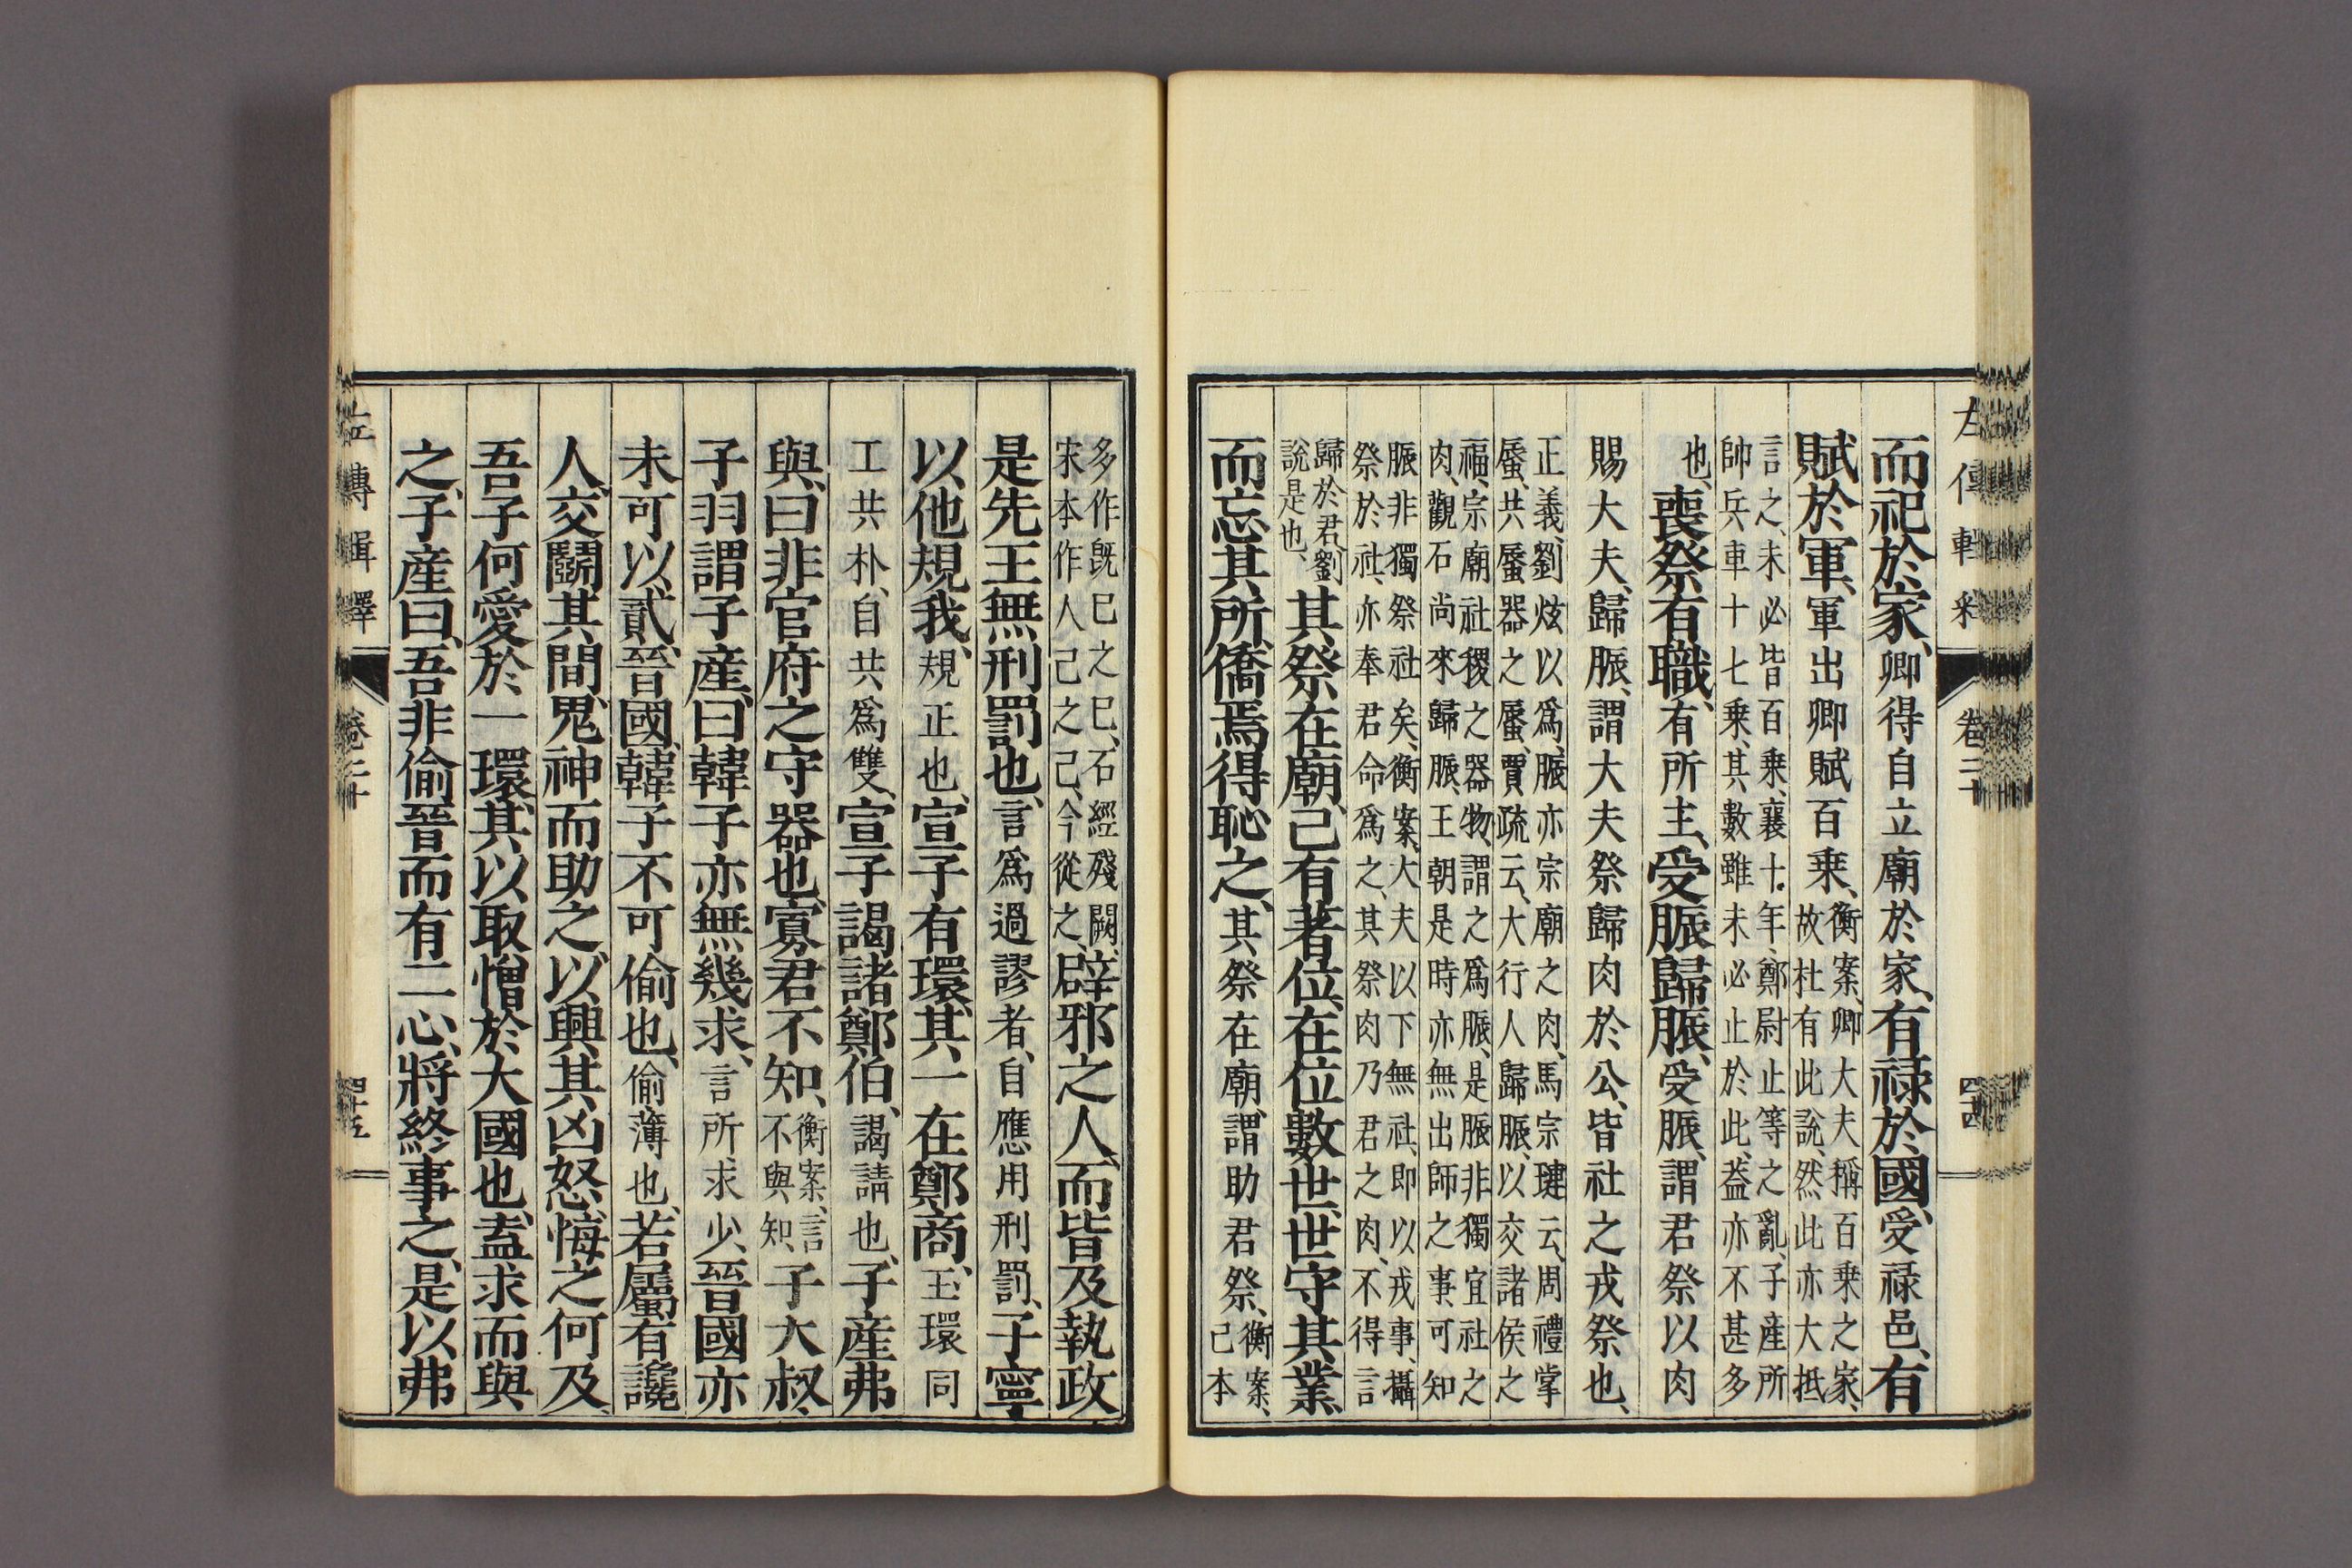 而祀於家、卿得自立廟於家、有祿於國、受祿邑、有
賦於軍、軍出卿賦百乘、衡案、卿大夫稱百乘之家、故杜有此說、然此亦大抵
言之、未必皆百乘、襄十年、鄭尉止等之亂、子產所帥兵車十七乘、其數雖未必止於此、蓋亦不甚多
也、喪祭有職、有所主、受脤歸脤、受脤、謂君祭以肉
賜大夫、歸脤、謂大夫祭歸肉於公、皆社之戎祭也、
正義、劉炫以爲、脤亦宗廟之肉、馬宗璉云、周禮掌蜃、共蜃器之蜃、賈疏云、大行人歸脤、以交諸侯之
福、宗廟社稷之器物、謂之爲脤、是脤非獨宜社之肉、觀石尚來歸脤、王朝是時亦無出師之事、可知
脤非獨祭社矣、衡案、大夫以下無社、卽以戎事、攝祭於社、亦奉君命爲之、其祭肉乃君之肉、不得言
歸於君、劉說是也、其祭在廟、己有著位、在位數世、世守其業、
而忘其所、僑焉得恥之、其祭在廟、謂助君祭、衡案、己本
左傳輯釋 卷二十 四十四
多作旣已之已、石經殘闕、宋本作人己之己、今從之、辟邪之人、而皆及執政
是先王無刑罰也、言爲過謬者、自應用刑罰、子寧
以他規我、規正也、宣子有環、其一在鄭商、玉環同
工共朴、自共爲雙、宣子謁諸鄭伯、謁請也、子產弗
與、曰非官府之守器也、寡君不知、衡案、言不與知、子大叔、
子羽謂子產、曰韓子亦無幾求、言所求少、晉國亦
未可以貳、晉國韓子不可偷也、偷薄也、若屬有讒
人、交鬭其間、鬼神而助之、以興其凶怒、悔之何及、
吾子何愛於一環、其以取憎於大國也、盍求而與
之、子產曰、吾非偷晉而有二心、將終事之、是以弗
左傳輯釋 卷二十 四十五